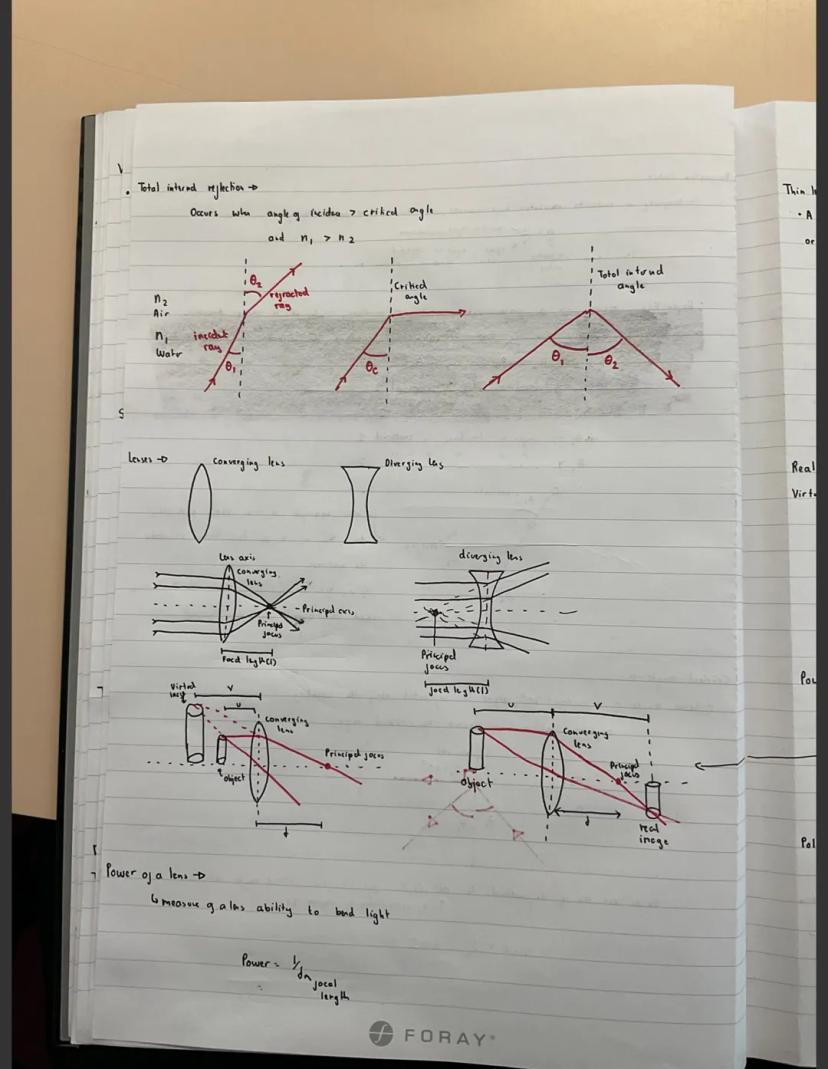 • Total internal reflection →
Occurs when angle of incidence > critical angle
and n₁ > n₂
n₂
Air
n₁
Water
θ₂
refracted
ray
incident
ray
θ₁
Critical
angle
θc
Total internal
angle
θ₁
θ₂
Lenses →
Converging lens
Diverging lens
Lens axis
converging
lens
Principal axis
Principal
focus
Focal length(f)
diverging lens
Principal
focus
focal length(f)
Virtual
v
u
Converging
lens
Principal focus
object
f
u
v
Converging
lens
Principal
focus
object
f
real
image
Power of a lens →
↳ measure of a lens ability to bend light
Power = 1/f
focal
length
FORAY
Thin
• A
or
Real
Virt
Pow
Pol